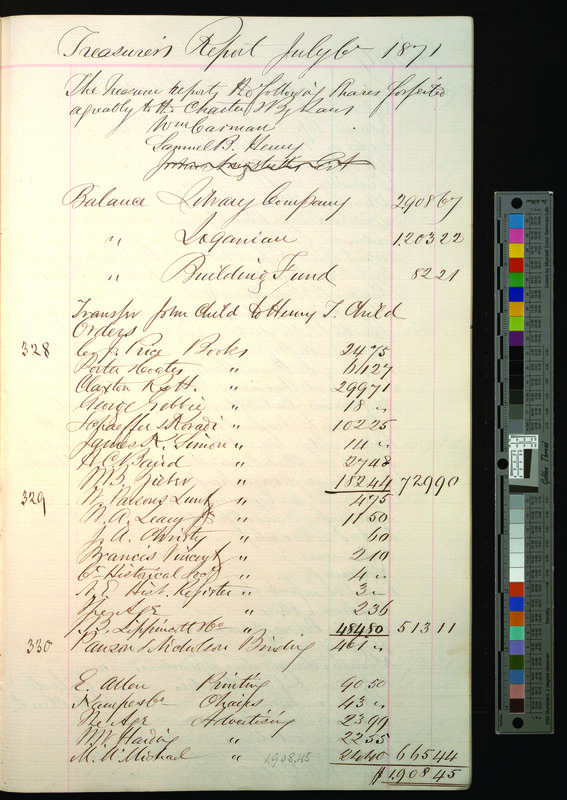 Treasurer's Report July 6th 1871
The Treasurer reports the following Shares forfeited
agreeably to the Charter & By Laws
Wm Carman
Samuel B. Henry
Balance Library Company 2908 67
" Loganian 1203 22
" Building Fund 82 21
Transfer John Child to Henry T. Child
Orders
328 C. J. Price Books 24 75
Porter & Coates " 61 27
Claxton R & H. " 299 71
George Gebbie " 18 "
Schaeffer & Koradi " 102 25
James K. Simon " 14 "
H. C. Baird " 27 48
" 182 44 729 90
329 W. Parsons Lunt " 4 75
W. A. Leary Jr " 11 50
J. A. Christy " 60
Francis Vincent " 2 10
Historical Soc " 4 "
N. E. Hist. Register " 3 "
The Age " 2 36
J. B. Lippincott & Co " 484 80 513 11
330 Pawson & Nicholson Binding 461 "
E. Allen Printing 90 50
Chairs 43 "
The Age Advertising 23 99
W. W. Harding " 22 55
M. McMichael " 1,908.45 24 40 665 44
$1,908 45